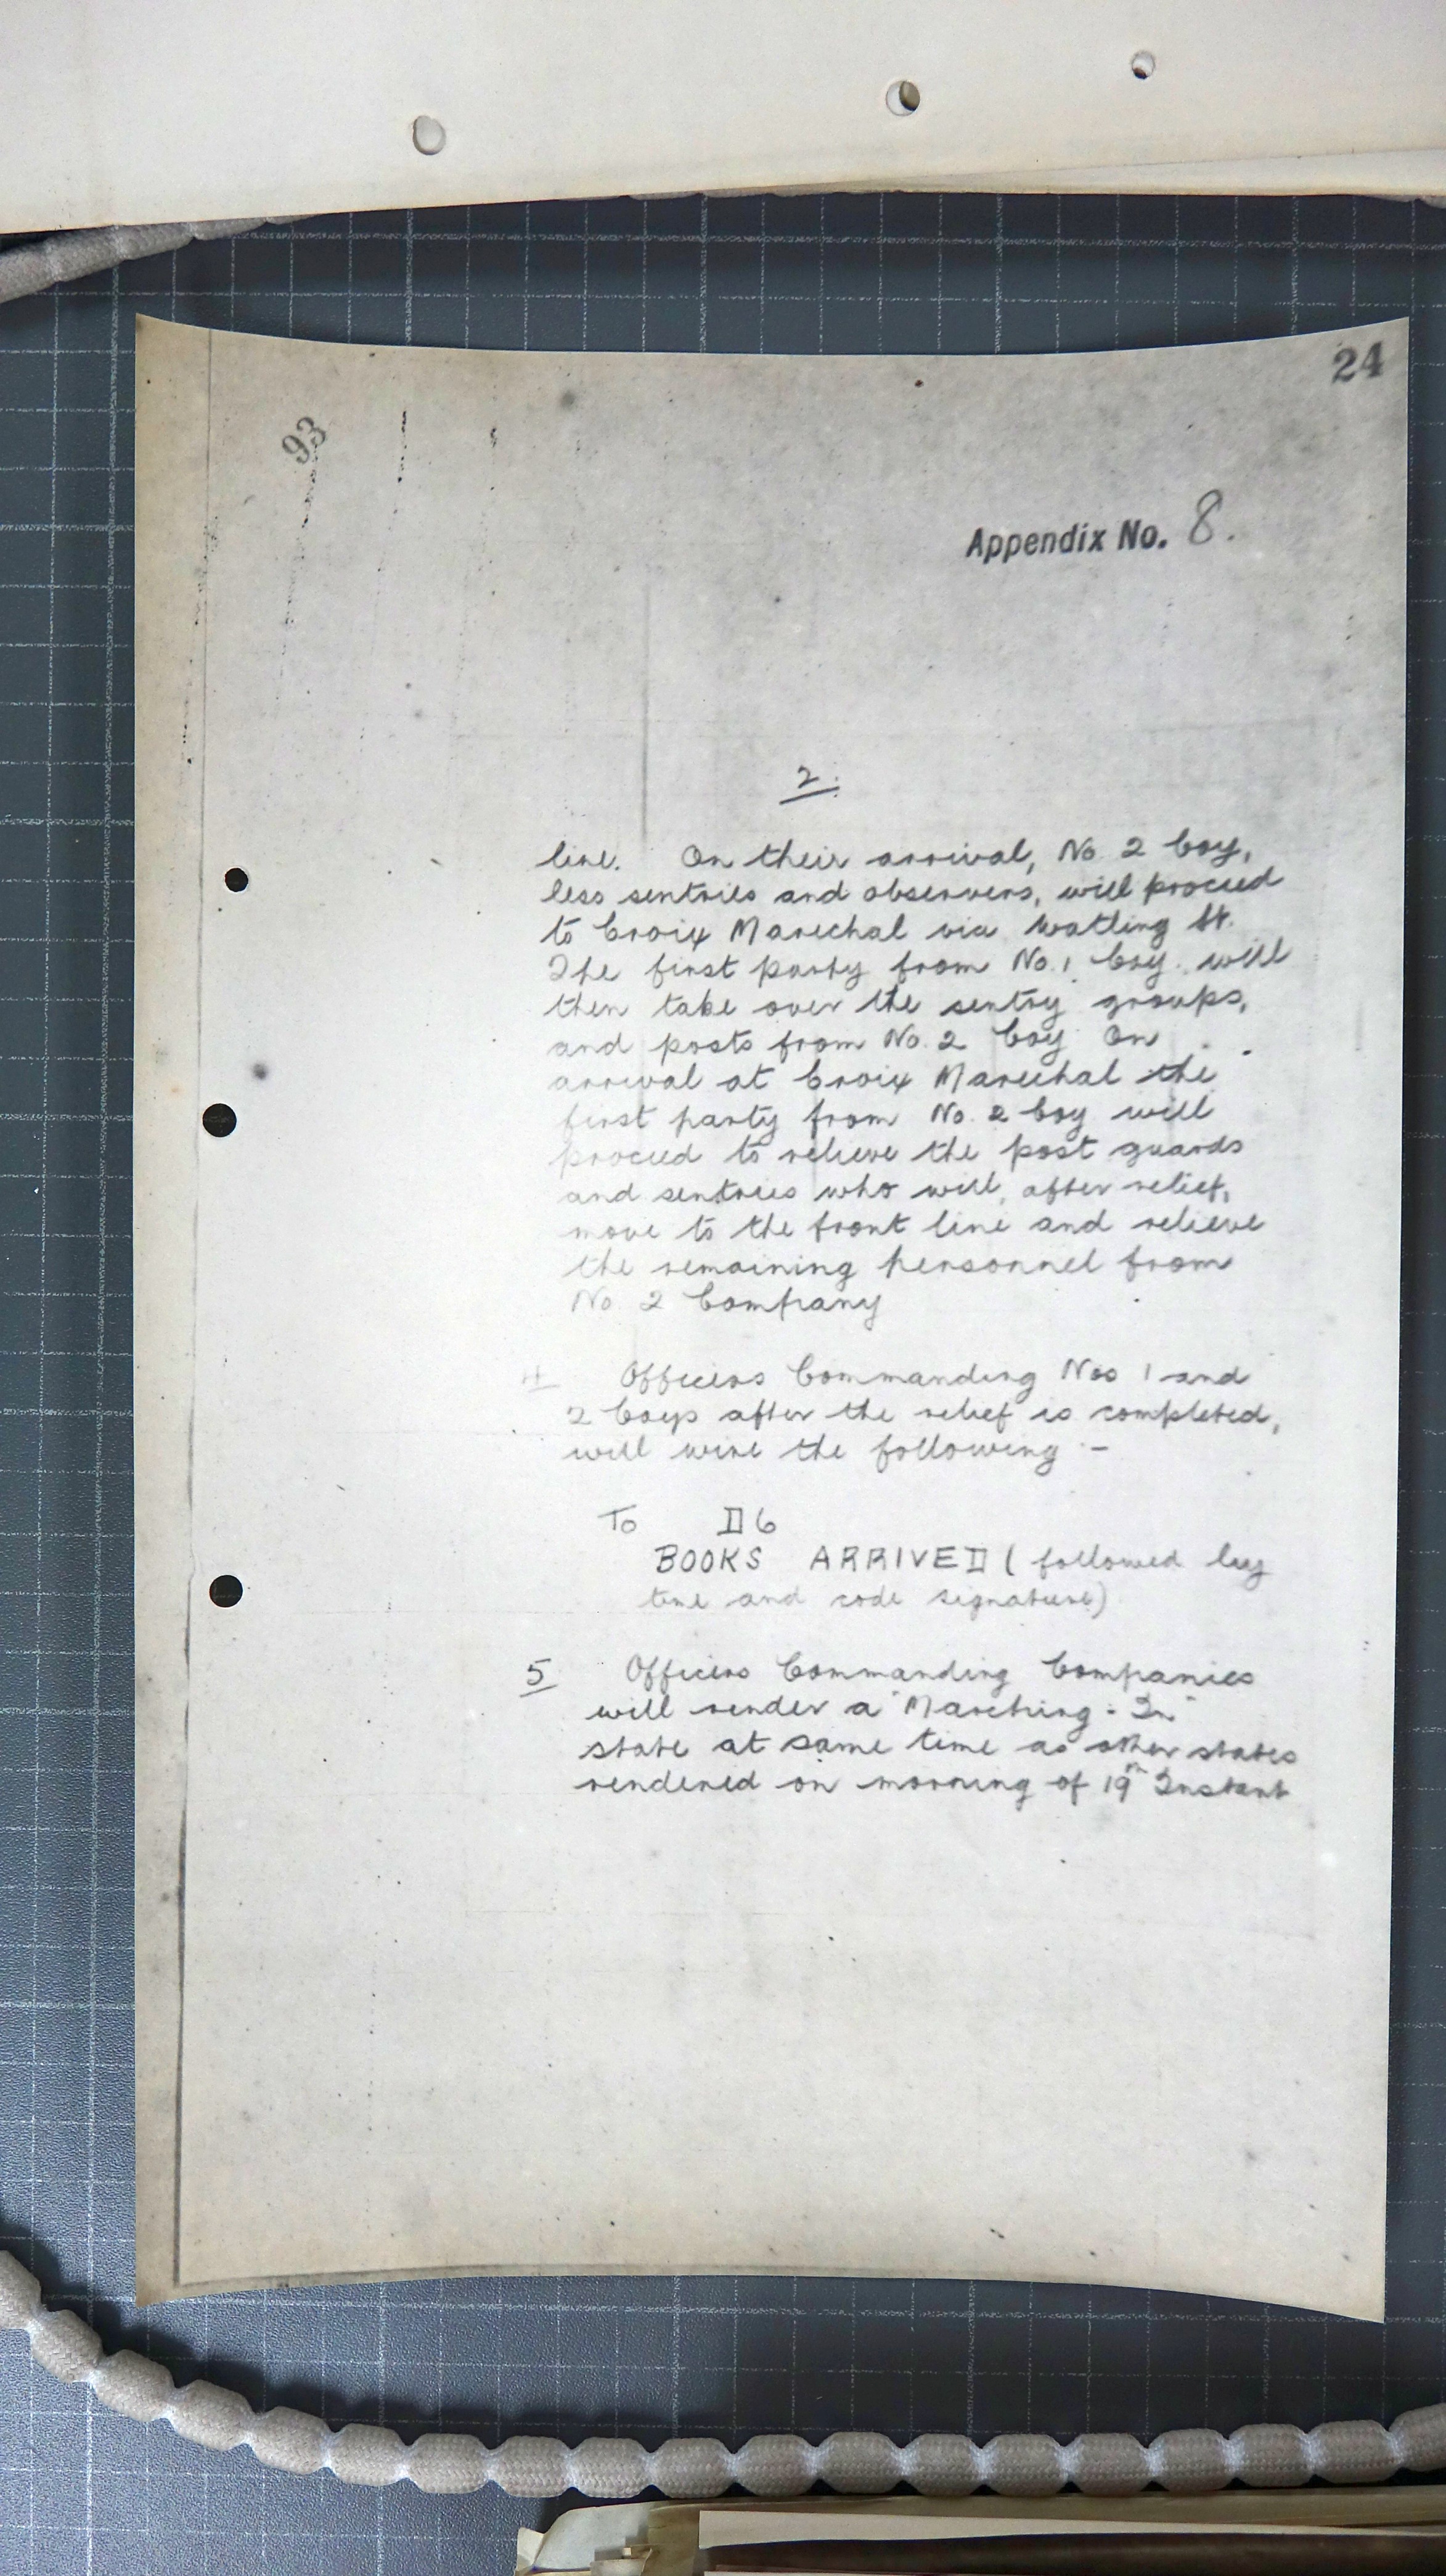 24
93
Appendix No. 8.
2.
line. On their arrival, No. 2 Coy,
less sentries and observers, will proceed
to Croix Marechal via Watling St.
The first party from No. 1 Coy. will
then take over the sentry groups,
and posts from No. 2 Coy On
arrival at Croix Marechal the
first party from No. 2 Coy will
proceed to relieve the post guards
and sentries who will, after relief,
move to the front line and relieve
the remaining personnel from
No 2 Company
4 Officers Commanding Nos 1 and
2 Coys after the relief is completed,
will wire the following :-
To D6
BOOKS ARRIVED (followed by
time and code signature)
5 Officers Commanding Companies
will render a "Marching-In"
state at same time as other states
rendered on morning of 19th Instant